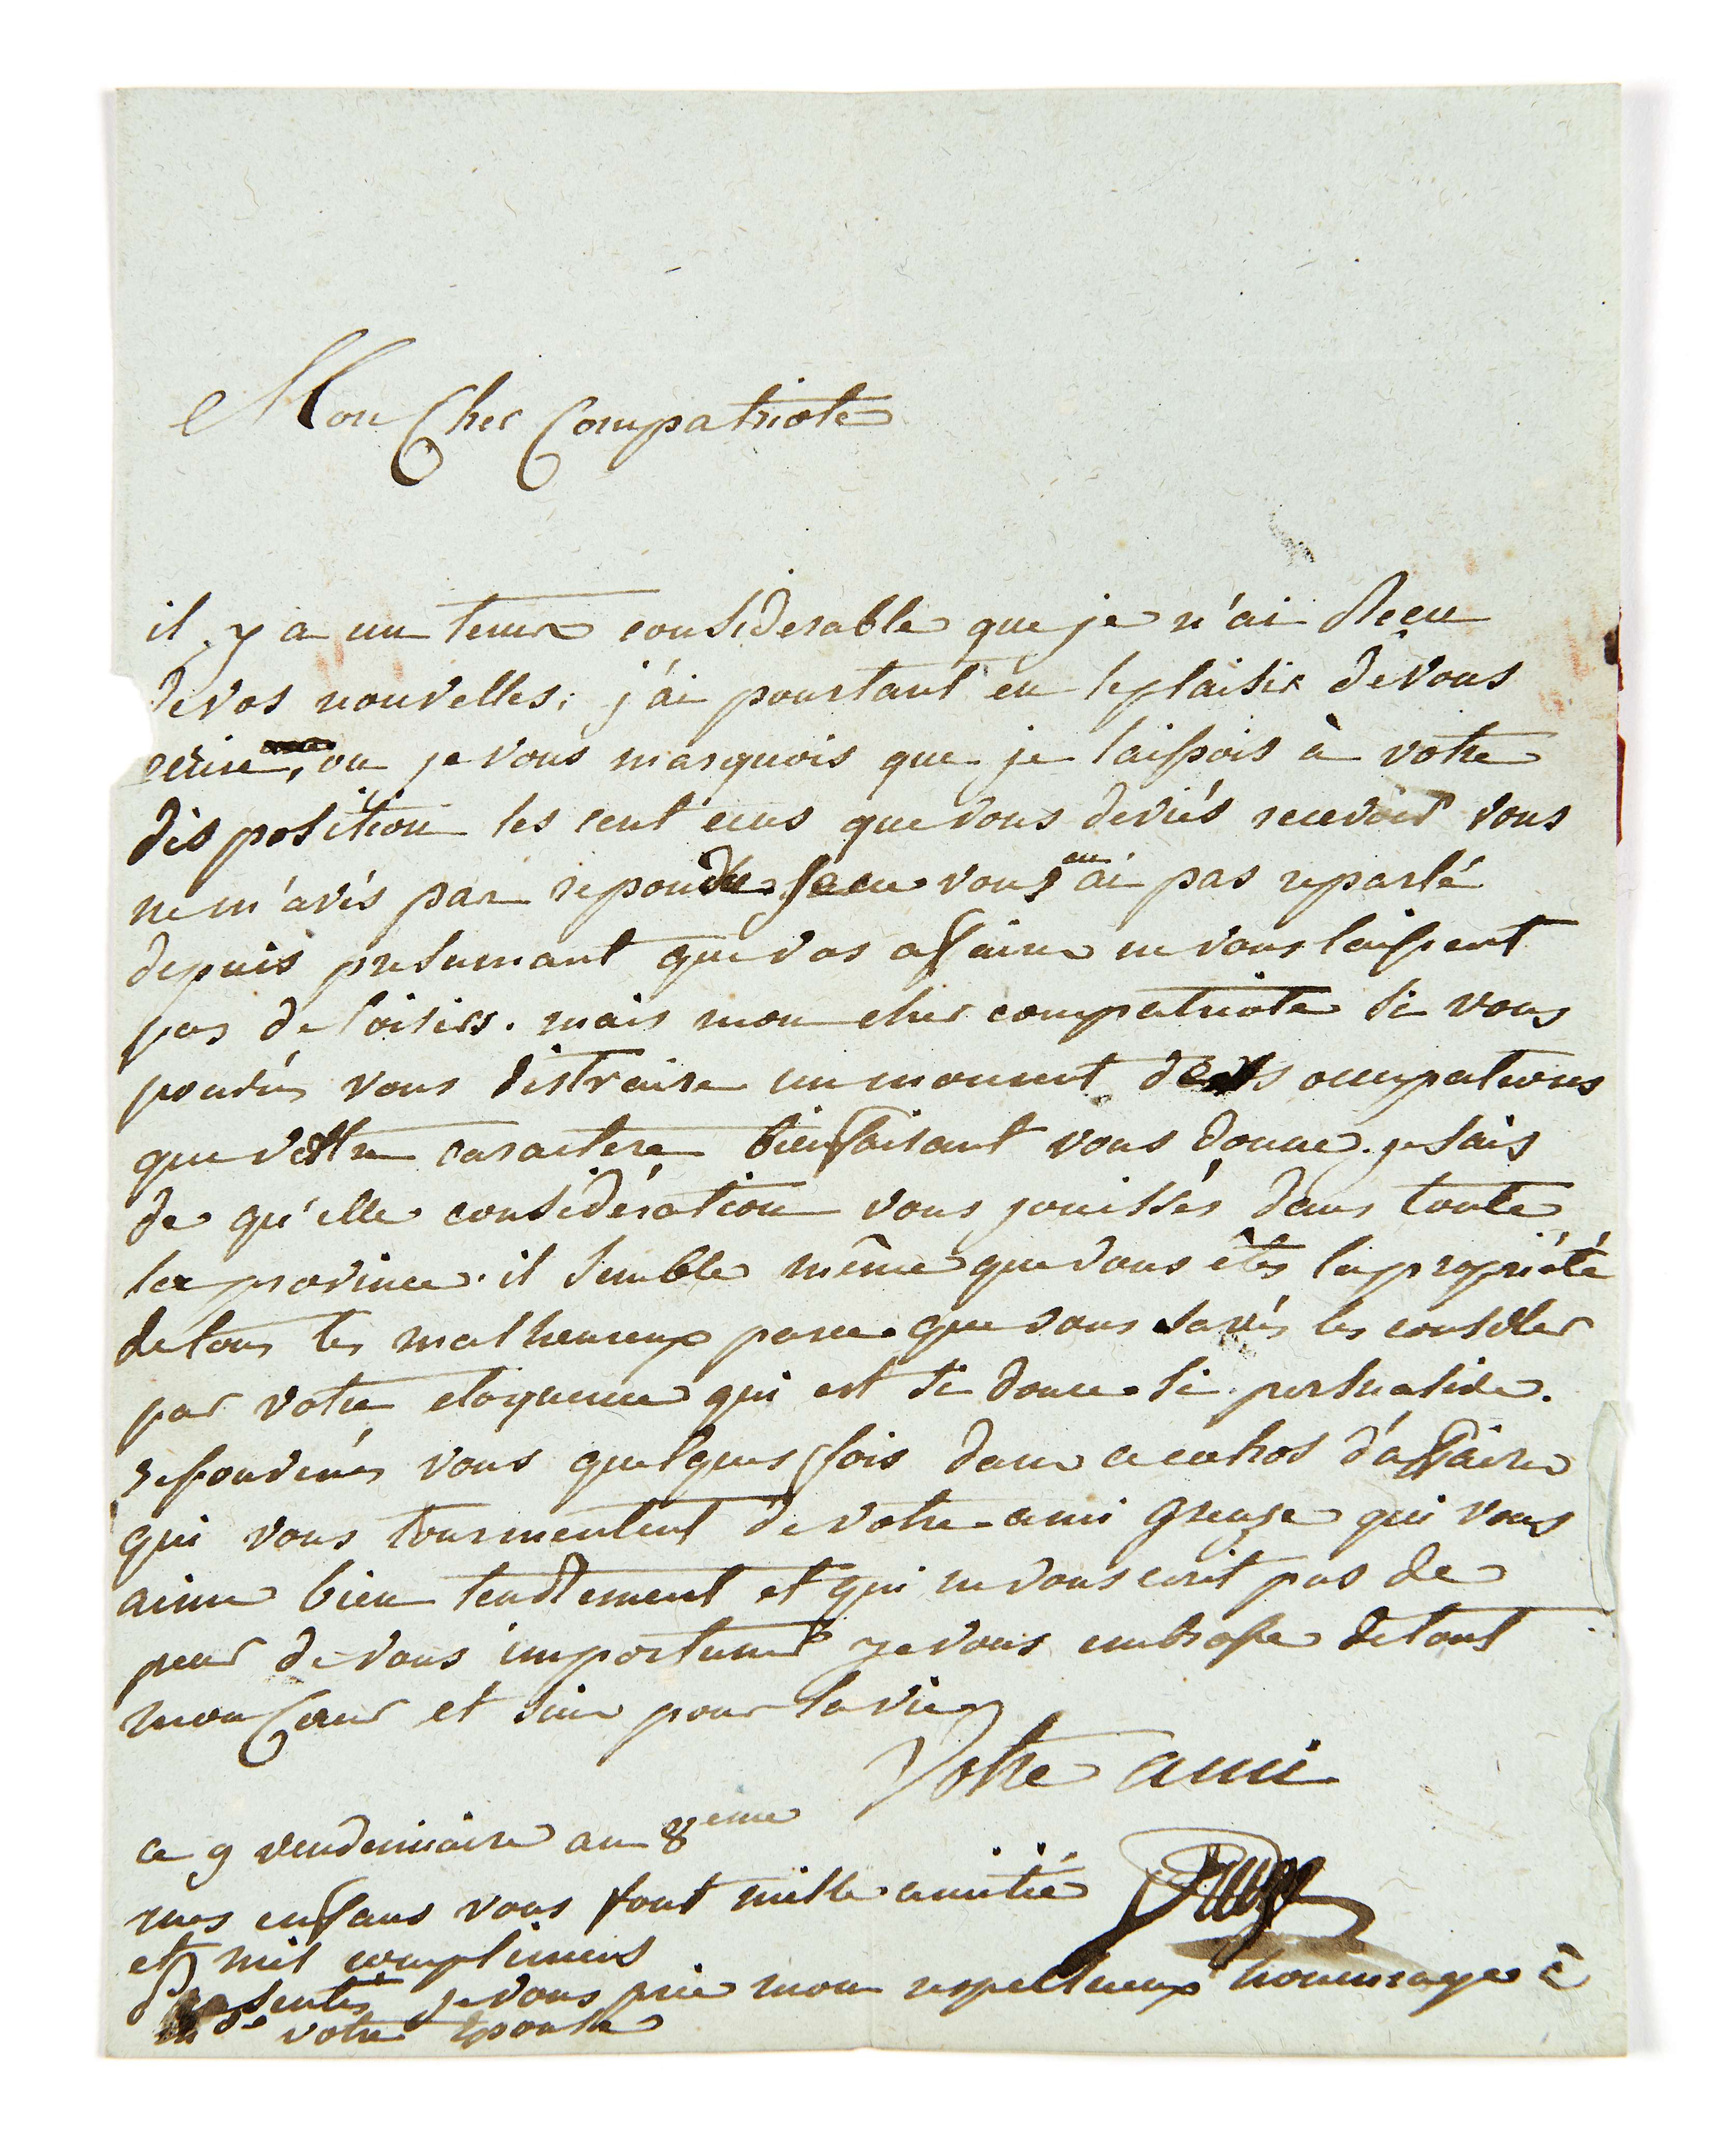 Mon Cher Compatriote
il y a un tems considerable que je n'ai Reçu
de vos nouvelles; j'ai pourtant eu le plaisir de vous
ecrire, ou je vous marquois que je laissois à votre
disposition les cent ecus que vous deviés recevoir vous
ne m'avés pas repondu je ne vous en ai pas reparlé
depuis presumant que vos affaires ne vous laissent
pas de loisirs. mais mon cher compatriote si vous
pouvés vous distraire un moment des occupations
que votre caractere bienfaisant vous donne. je sais
de qu'elle considération vous jouissés dans toute
la province. il semble même que vous êtes la propriété
de tous les malheureux parce que vous savés les consoler
par votre eloquence qui est si douce si persuasive.
resouvenés vous quelques fois dans ce cahos d'affaires
qui vous tourmentent de votre ami greuze qui vous
aime bien tendrement et qui ne vous ecrit pas de
peur de vous importuner je vous embrasse de tout
mon Cœur et suis pour la vie
Votre ami
ce 9 vendemiaire an 8eme
Greuze
mes enfans vous font mille amitié
et mil complimens
presentés je vous prie mon respectueux hommage à
Mde votre Epouse